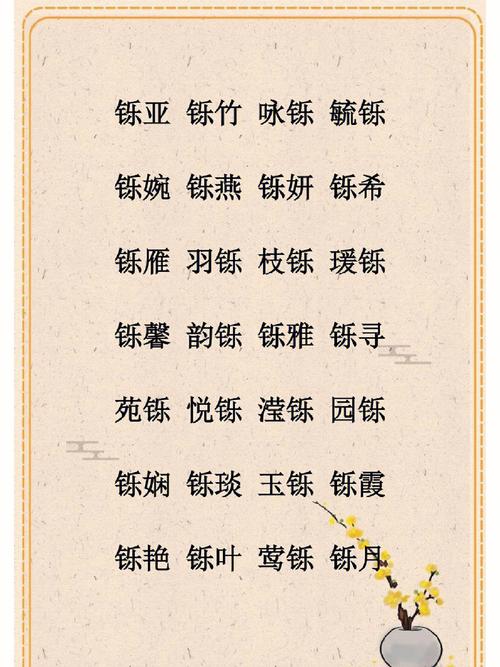 铄亚 铄竹 咏铄 毓铄
铄婉 铄燕 铄妍 铄希
铄雁 羽铄 枝铄 瑗铄
铄馨 韵铄 铄雅 铄寻
苑铄 悦铄 滢铄 园铄
铄娴 铄琰 玉铄 铄霞
铄艳 铄叶 莺铄 铄月